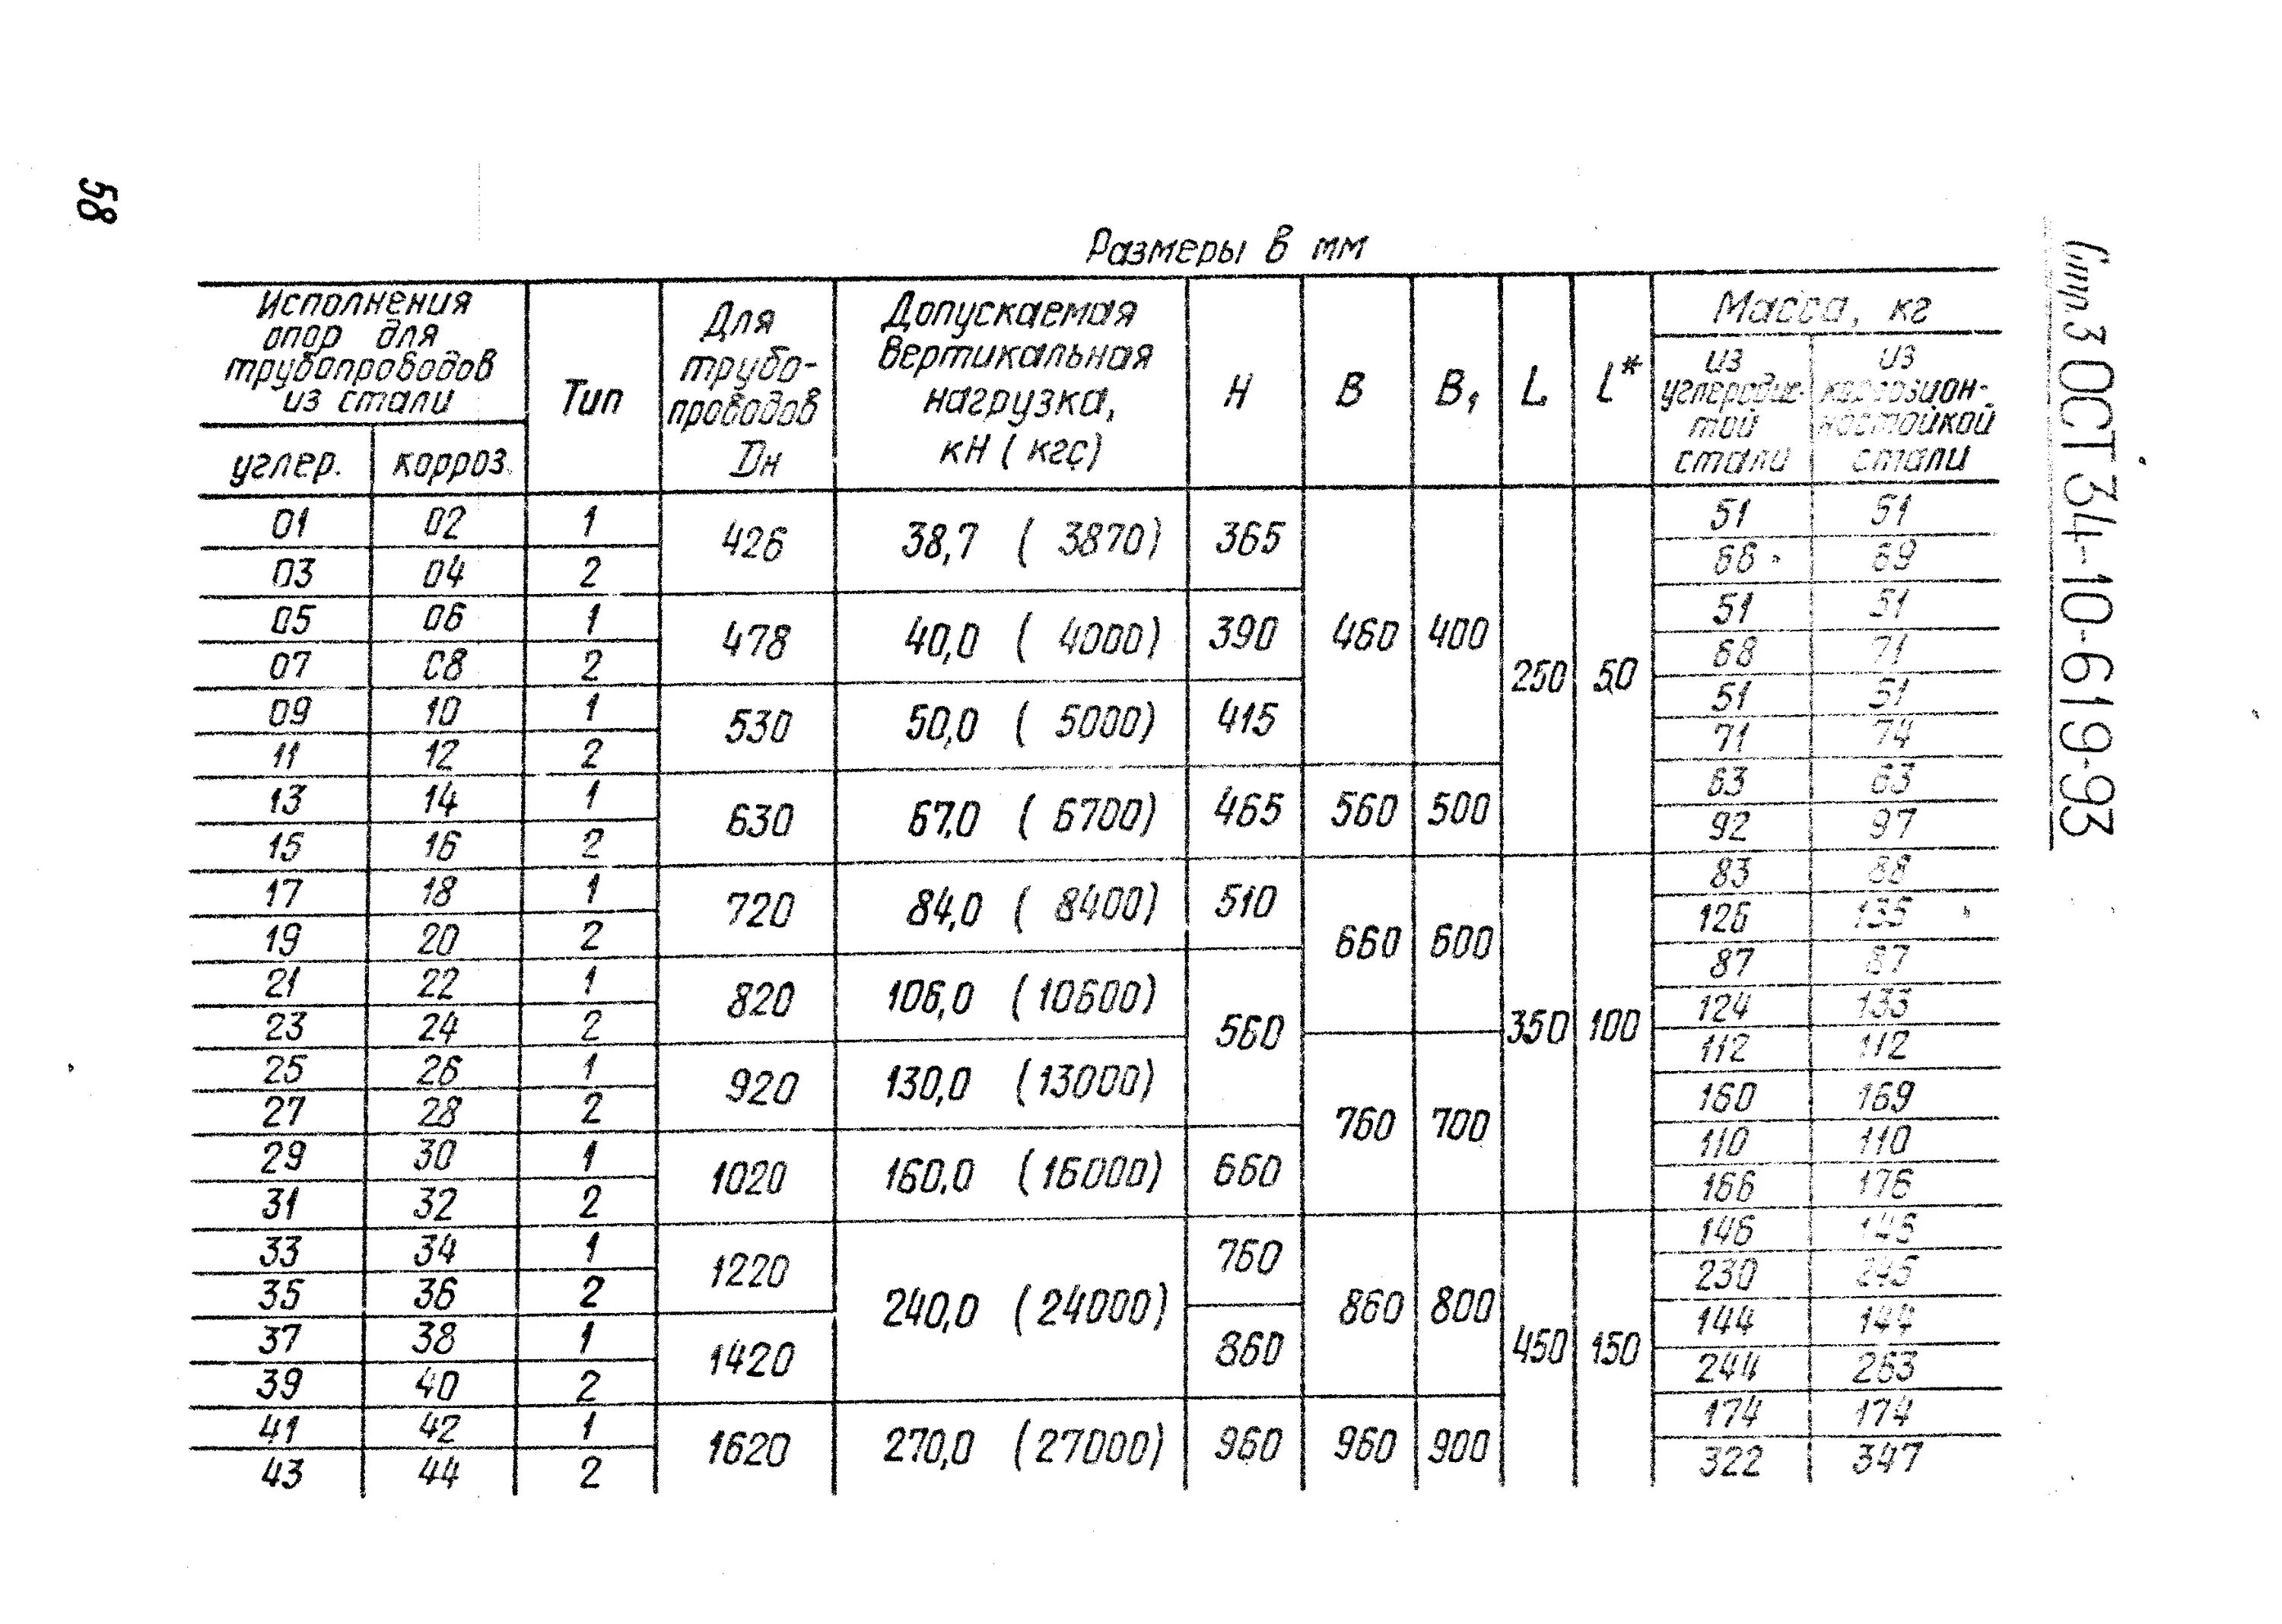 58
Стр. 3 ОСТ 34-10-619-93
Размеры в мм
Исполнения опор для трубопроводов из стали | Тип | Для трубо-проводов Dн | Допускаемая вертикальная нагрузка, кН (кгс) | H | B | B₁ | L | l* | Масса, кг
углер. | корроз. | из углеродис-той стали | из коррозион-ностойкой стали
01 02 1 426 38,7 (3870) 365 460 400 250 50 51 51
03 04 2 68 69
05 06 1 478 40,0 (4000) 390 51 51
07 08 2 68 71
09 10 1 530 50,0 (5000) 415 51 51
11 12 2 71 74
13 14 1 630 67,0 (6700) 465 560 500 63 63
15 16 2 92 97
17 18 1 720 84,0 (8400) 510 660 600 350 100 83 88
19 20 2 126 135
21 22 1 820 106,0 (10600) 560 87 87
23 24 2 124 133
25 26 1 920 130,0 (13000) 760 700 112 112
27 28 2 160 169
29 30 1 1020 160,0 (16000) 660 110 110
31 32 2 166 176
33 34 1 1220 240,0 (24000) 760 860 800 450 150 146 146
35 36 2 230 245
37 38 1 1420 860 144 144
39 40 2 244 263
41 42 1 1620 270,0 (27000) 960 960 900 174 174
43 44 2 322 347